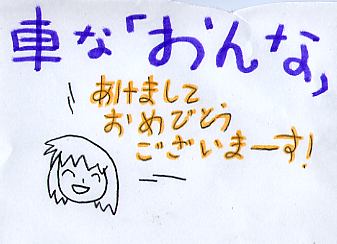 車な「おんな」
あけまして
おめでとう
ございまーす!